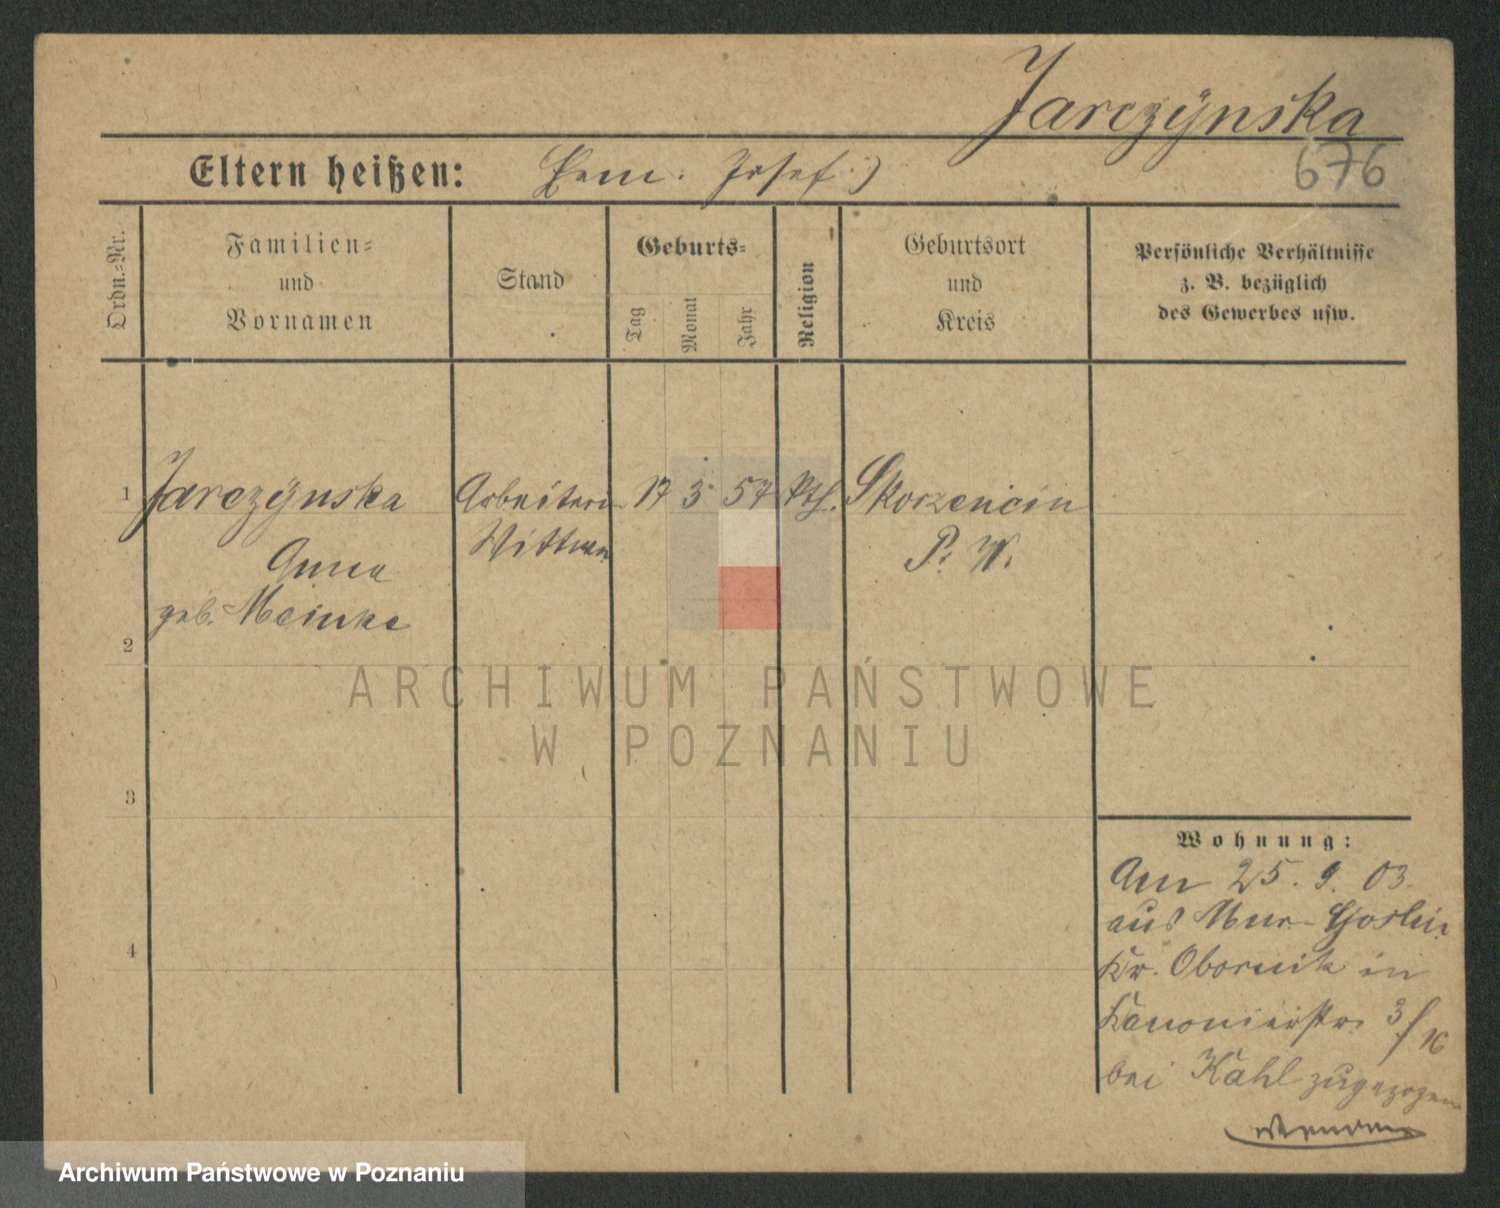 Jarczÿnska
676
Eltern heißen: Josef
Ordn.-Nr.
Familien-
und
Vornamen
Stand
Geburts-
Tag
Monat
Jahr
Religion
Geburtsort
und
Kreis
Persönliche Verhältnisse
z. B. bezüglich
des Gewerbes usw.
1 Jarczÿnska Arbeiterin 17 3 57 kth. Skorzencin
Wittwe P. W.
Anna
geb. Meinke
2
3
4
Wohnung:
Am 25. 9. 03.
aus Mur-Goslin
Kr. Obornik in
Kanonierstr. 3/
bei Kahl zugezogen
ARCHIWUM PAŃSTWOWE
W POZNANIU
Archiwum Państwowe w Poznaniu